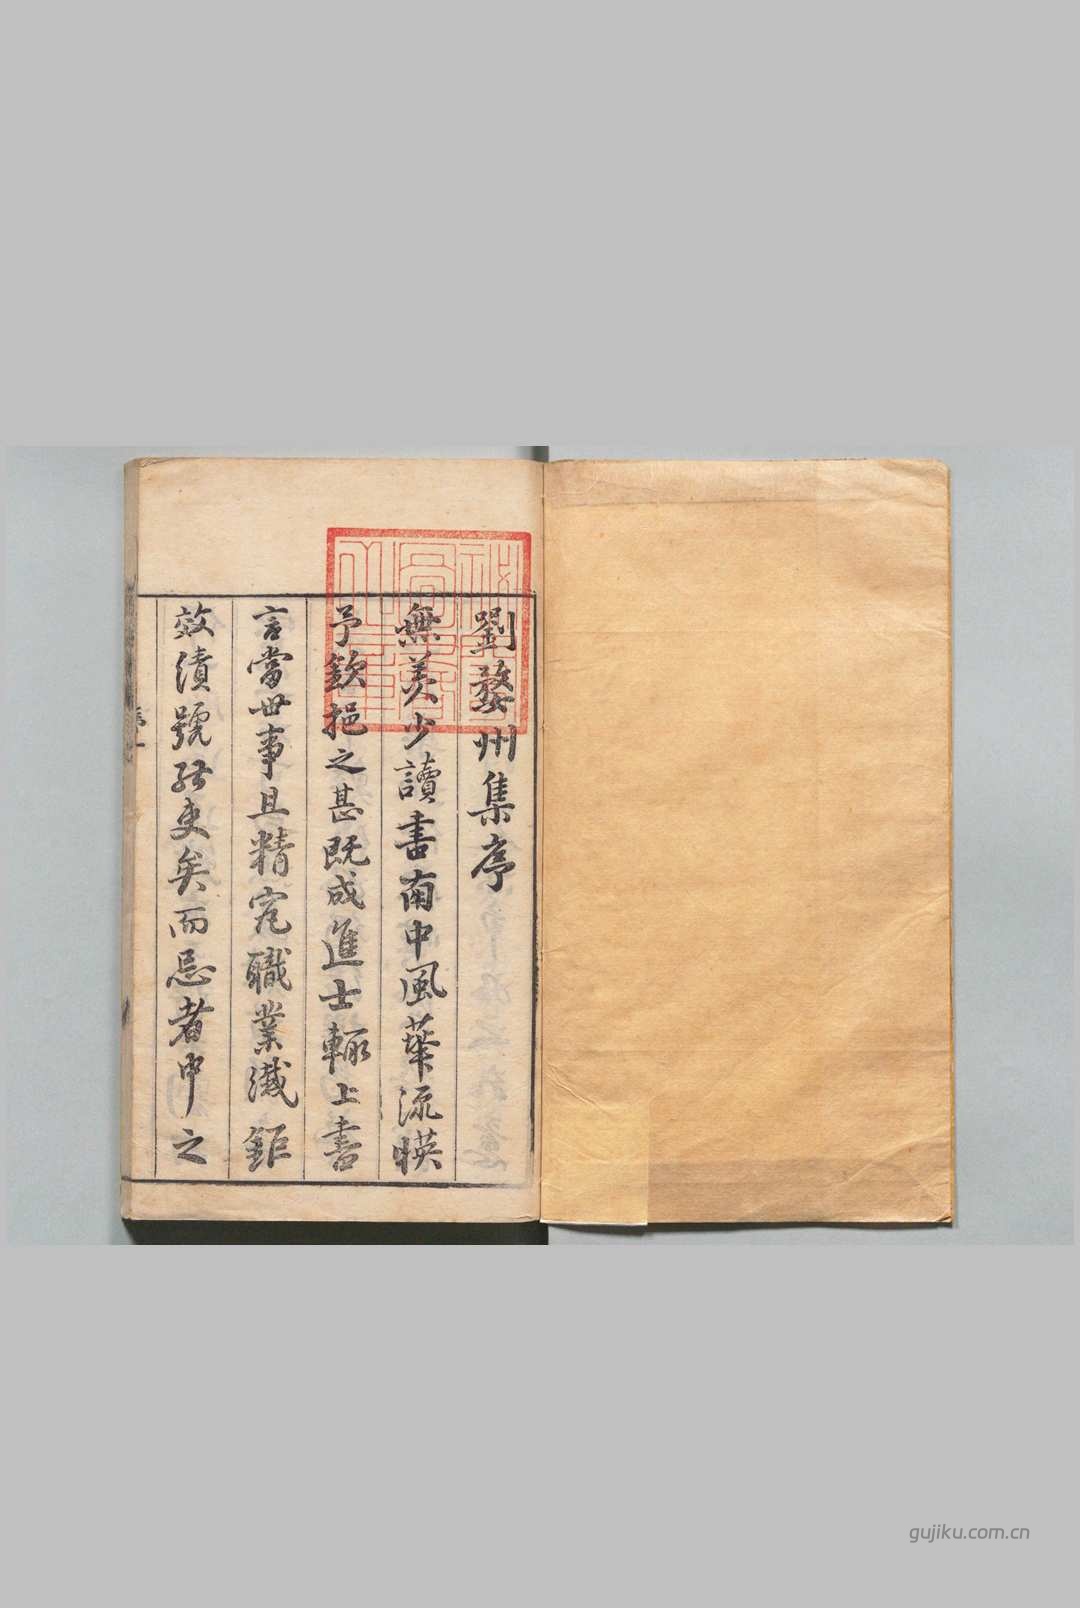 劉婺州集序
無美少讀書南中風華流暎
予欽挹之甚既成進士輒上書
言當世事且精究職業纎鉅
效績號能吏矣而忌者中之
序
gujiku.com.cn